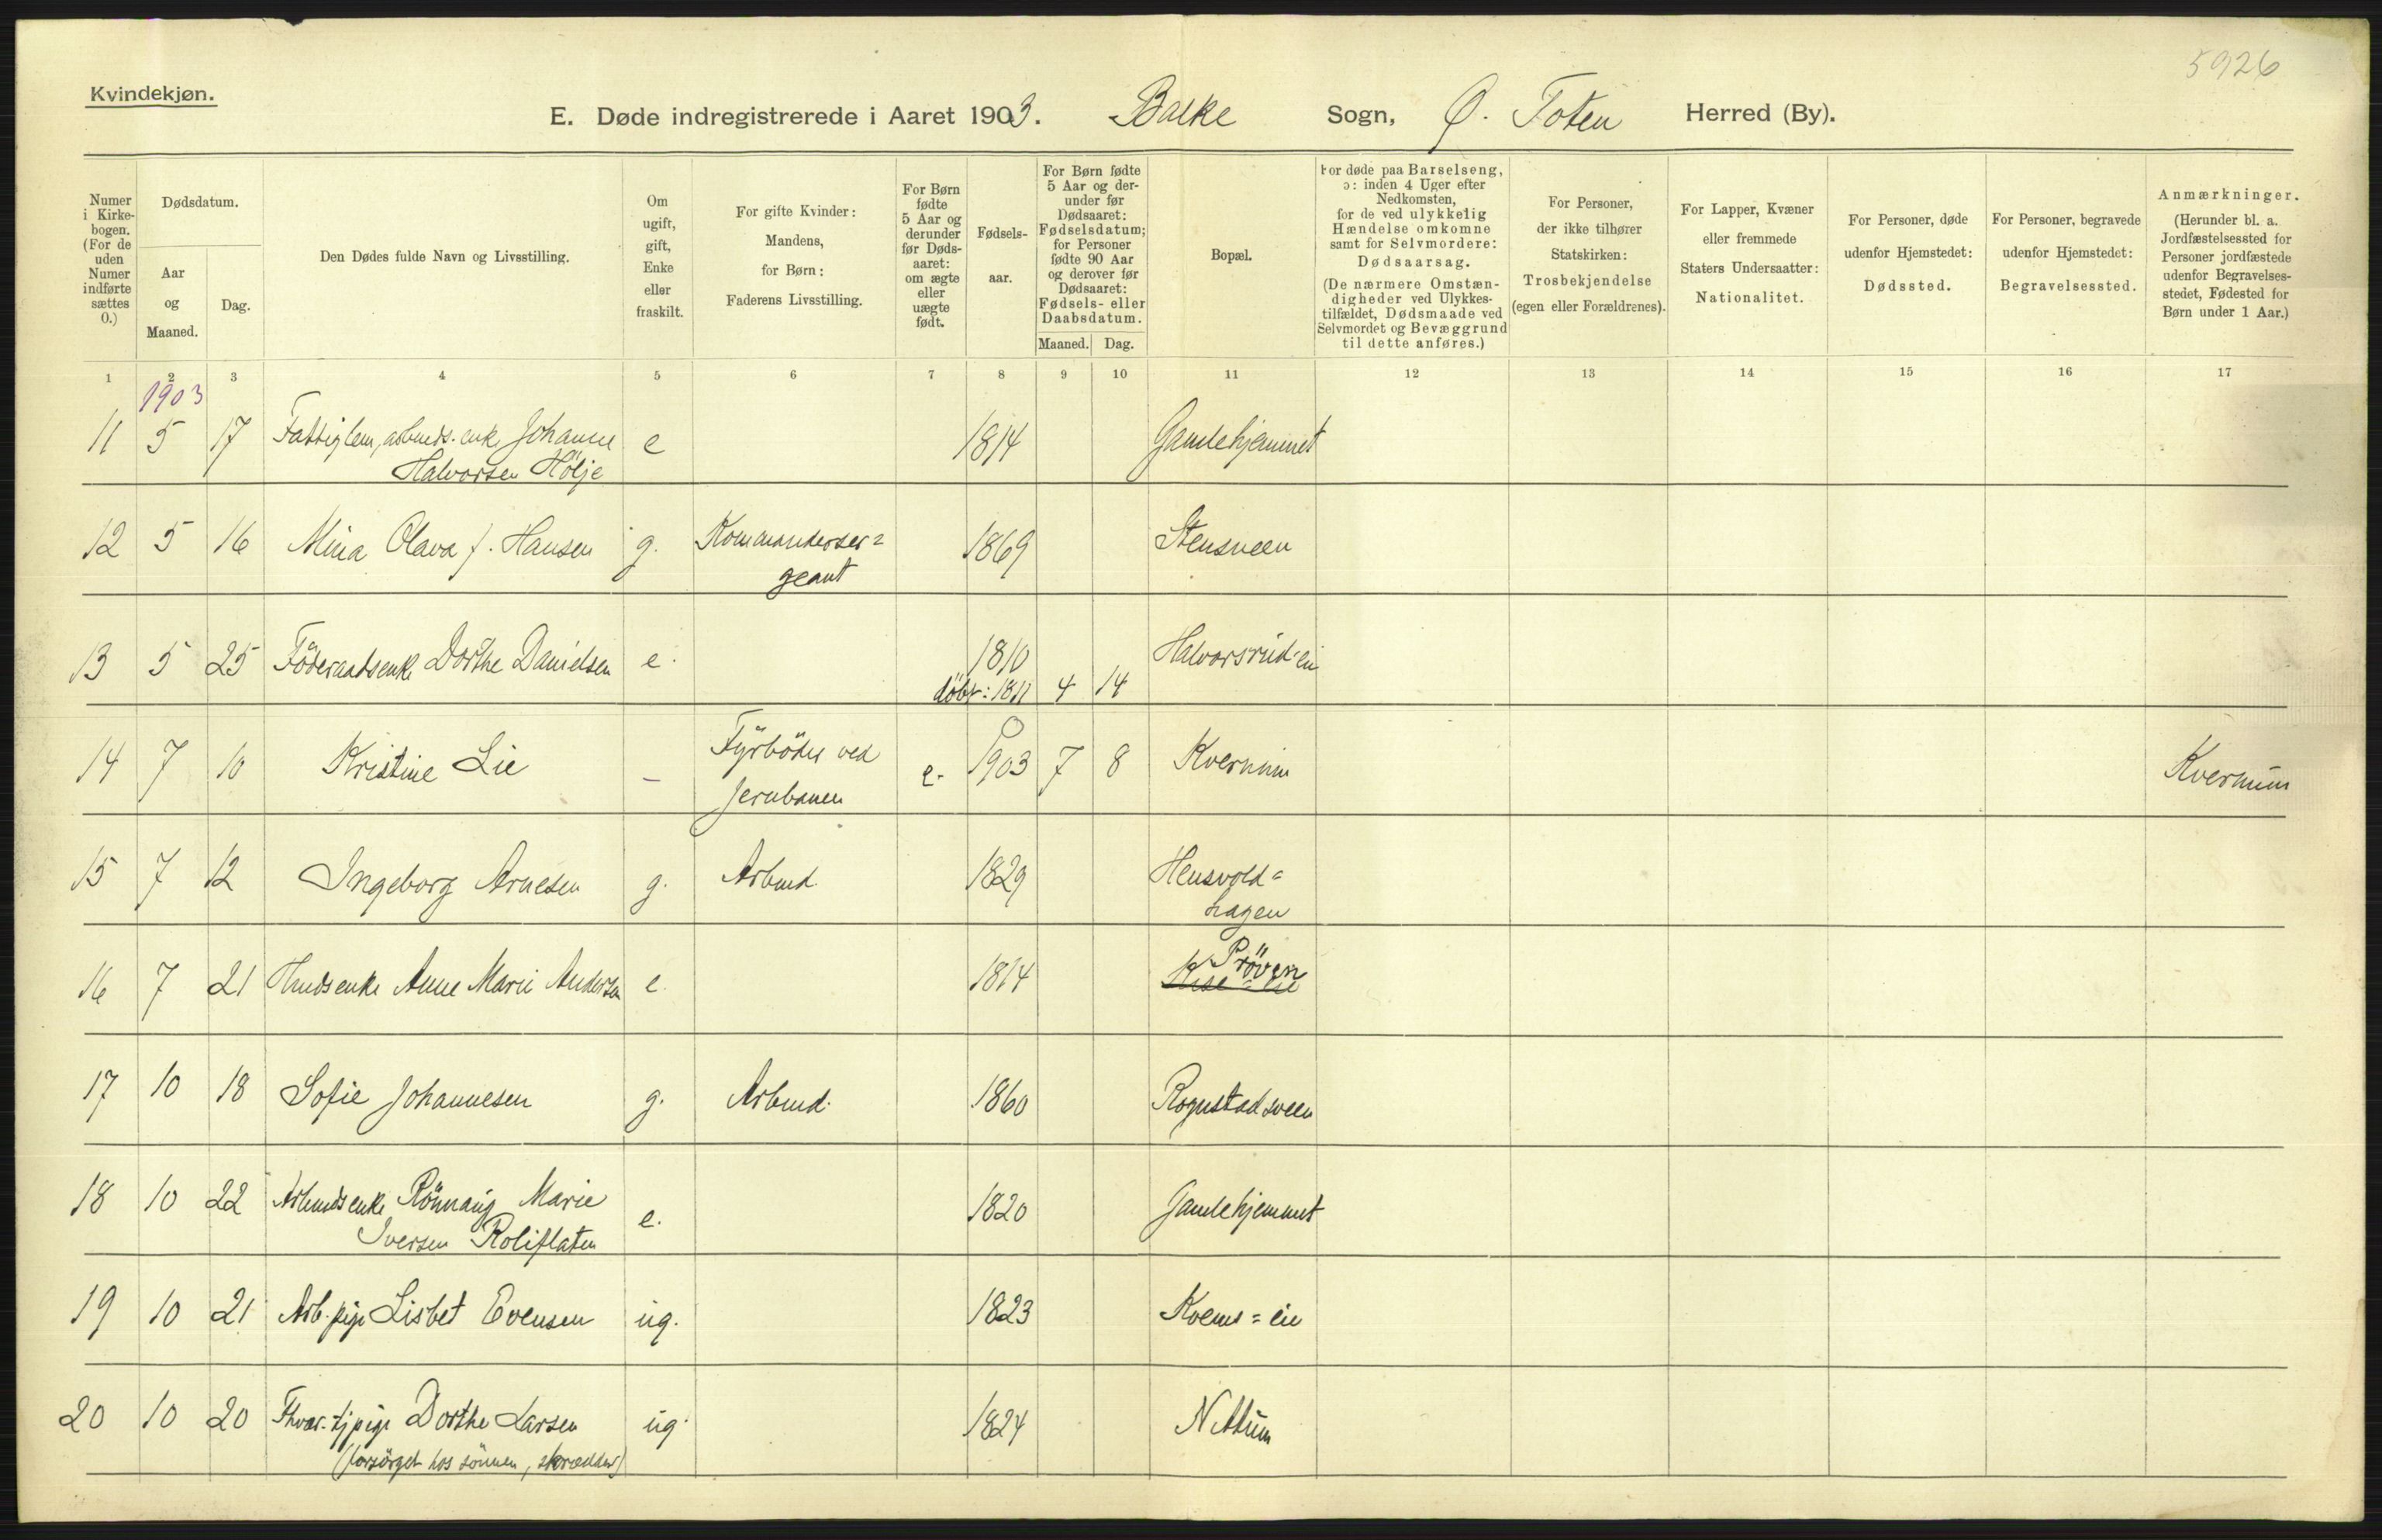 5926
Kvindekjøn.
E. Døde indregistrerede i Aaret 1903. Balke Sogn, Ø. Toten Herred (By).
Numer i Kirke-bogen. (For de uden Numer indførte sættes 0.)
Dødsdatum.
Aar og Maaned.
Dag.
Den Dødes fulde Navn og Livsstilling.
Om ugift, gift, Enke eller fraskilt.
For gifte Kvinder: Mandens, for Børn: Faderens Livsstilling.
For Børn fødte 5 Aar og derunder før Døds-aaret: om ægte eller uægte født.
Fødsels-aar.
For Børn fødte 5 Aar og der-under før Dødsaaret: Fødselsdatum; for Personer fødte 90 Aar og derover før Dødsaaret: Fødsels- eller Daabsdatum.
Maaned. Dag.
Bopæl.
For døde paa Barselseng, ɔ: inden 4 Uger efter Nedkomsten, for de ved ulykkelig Hændelse omkomne samt for Selvmordere: Dødsaarsag. (De nærmere Omstæn-digheder ved Ulykkes-tilfældet, Dødsmaade ved Selvmordet og Bevæggrund til dette anføres.)
For Personer, der ikke tilhører Statskirken: Trosbekjendelse (egen eller Forældrenes).
For Lapper, Kvæner eller fremmede Staters Undersaatter: Nationalitet.
For Personer, døde udenfor Hjemstedet: Dødssted.
For Personer, begravede udenfor Hjemstedet: Begravelsessted.
Anmærkninger. (Herunder bl. a. Jordfæstelsessted for Personer jordfæstede udenfor Begravelses-stedet, Fødested for Børn under 1 Aar.)
1 2 3 4 5 6 7 8 9 10 11 12 13 14 15 16 17
1903
11 5 17 Fattiglem, arbmds. enke Johanne e 1814 Gamlehjemmet
Halvorsen Hölje
12 5 16 Mina Olava f. Hansen g. Kommanderser= 1869 Stensveen
geant
13 5 25 Föderaadsenke Dorthe Danielsen e. 1810 Halvorsrud-ei
döbt: 1811 4 14
14 7 10 Kristine Lie – Fyrböder ved e. 1903 7 8 Kvernum Kvernum
Jernbanen
15 7 12 Ingeborg Arnesen g. Arbmd. 1829 Hensvold=
hagen
16 7 21 Hmdsenke Anne Marie Andersen e. 1814 Pröven
17 10 18 Sofie Johannesen g. Arbmd. 1860 Rognstadsveen
18 10 22 Arbmdsenke Rönnaug Marie e. 1820 Gamlehjemmet
Iversen Roliflaten
19 10 21 Arb. pige Lisbet Evensen ug. 1823 Kvems=eie
20 10 20 Fhvær. tjpige Dorthe Larsen ug. 1824 Nettum
(forsörget hos sönnen, skrædder)